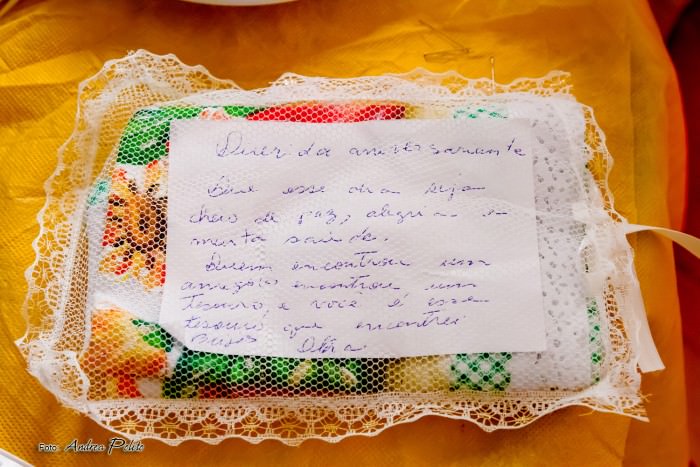 Querida aniversariante
Que esse dia seja
cheio de paz, alegria e
muita saúde.
Quem encontrou um
amigo(a) encontrou um
tesouro e você é esse
tesouro que encontrei
Foto: Andrea Pelek